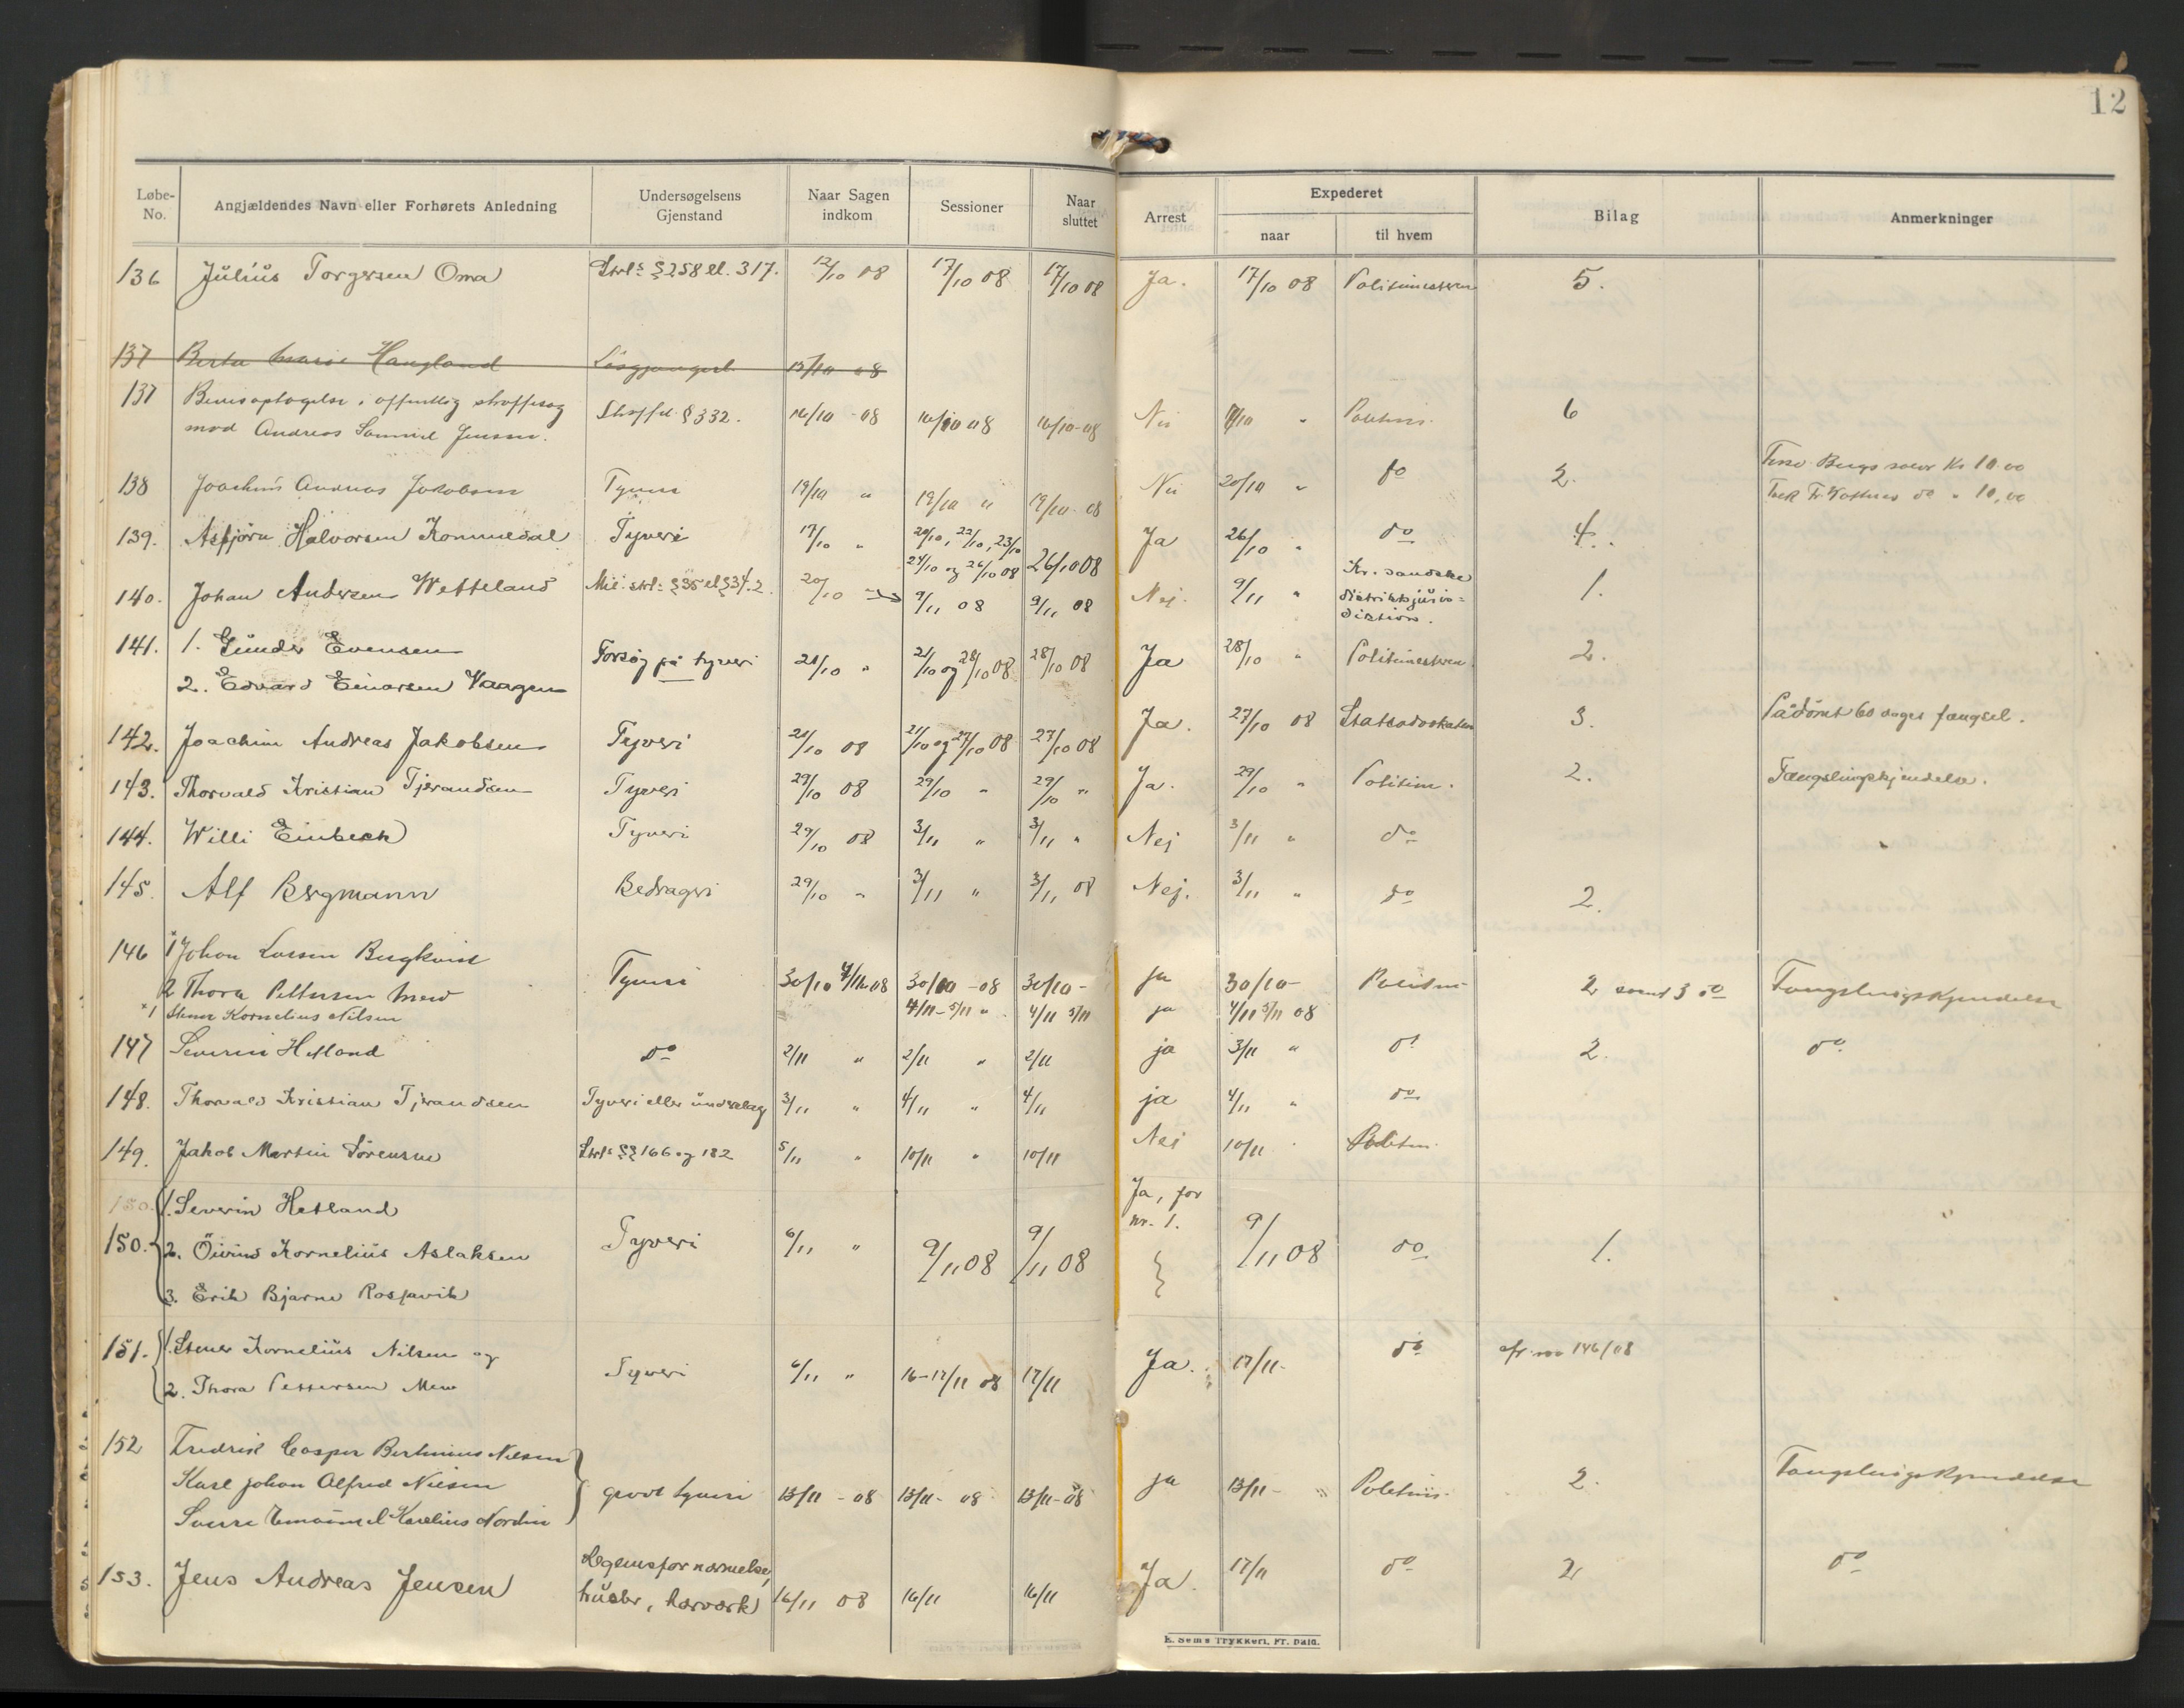 12
Løbe-No. Angjældendes Navn eller Forhørets Anledning Undersøgelsens Gjenstand Naar Sagen indkom Sessioner Naar sluttet Arrest Expederet naar til hvem Bilag Anmerkninger
136 Julius Torgersen Oma Strl. § 258 ell. 317. 12/10 08 17/10 08 17/10 08 Ja. 17/10 08 Politimesteren 5.
137 Berta Marie Haugland Løsgjængerl. 15/10 08
137 Bevisoptagelse i offentlig straffesag Straffel. § 332. 16/10 - 08 16/10 08 16/10-08 Nei /10 " Politim. 6
mod Andreas Samuel Jensen.
138 Joachim Andreas Jakobsen Tyveri 19/10 " 19/10 " 19/10 08 Nei 20/10 " do 2. Bergs salær Kr 10.00
do " 10,00
139. Asbjørn Halvorsen Kommedal Tyveri 17/10 " 20/10, 22/10, 23/10 24/10 og 26/10 08 26/10 08 Ja 26/10 " do 4.
140. Johan Andersen Wetteland Mil. strl. § 35 el § 34.2. 20/10 " 9/11 08 9/11 08 Nej. 9/11 " Kr.sandske distriktsjurisdiktion. 1.
141. 1. Gunder Evensen Forsøg på tyveri 21/10 " 21/10 og 28/10 08 28/10 08 Ja 28/10 " Politimesteren. 2.
2. Edvard Einarsen Vaagen
142. Joachim Andreas Jakobsen Tyveri 21/10 08 21/10 og 27/10 08 27/10 08 Ja. 27/10 08 Statsadvokaten 3. Pådømt 60 dages fængsel.
143. Thorvald Kristian Tjerandsen Tyveri 29/10 08 29/10 " 29/10 " Ja. 29/10 " Politim. 2. Fængslingskjendelse.
144. Willi Einbeck Tyveri 29/10 08 3/11 " 3/11 " Nej 3/11 " do
145. Alf Bergmann Bedrageri 29/10 " 3/11 " 3/11 08 Nej. 3/11 " do 2.
146 1 Johan Larsen Bergkvist
2 Thora Pettersen Mew Tyveri 30/10 4/11 08 30/10 - 08 30/10 - ja 30/10 - Politm 2 samt 3 do Fængslingskjendelse
1 Stener Kornelius Nilsen 4/11 - 5/11 " 4/11 5/11 ja 4/11 5/11 08
147 Severin Hetland do 2/11 " 2/11 " 2/11 ja 3/11 " do 2. do
148. Thorvald Kristian Tjerandsen Tyveri eller underslag 3/11 " 4/11 " 4/11 ja 4/11 " do
149. Jakob Martin Sørensen Strl. §§ 166 og 182 5/11 " 10/11 " 10/11 Nei 10/11 Politm.
150. 1. Severin Hetland Ja, for nr. 1.
150. 2. Öivind Kornelius Aslaksen Tyveri 6/11 " 9/11 08 9/11 08 9/11 08 do 1.
3. Erik Bjarne Rosfavik
151. 1. Stener Kornelius Nilsen og Tyveri 6/11 " 16-17/11 08 17/11 Ja. 17/11. do cfr. no 146/08
2. Thora Pettersen Mew
152 Fredrik Casper Bertinius Nilsen
Karl Johan Alfred Nilsen grovt tyveri 13/11 - 08 13/11 - 08 13/11-08 ja 13/11 - " Politim. 2. Fængslingskjendelse
Sverre Emanuel Karelius Nordin
153. Jens Andreas Jensen Legemsfornærmelse, husbr., hærværk 16/11 08 16/11 16/11 Ja. 17/11 do 2 do
E. Sem's Trykkeri, Fr.hald.